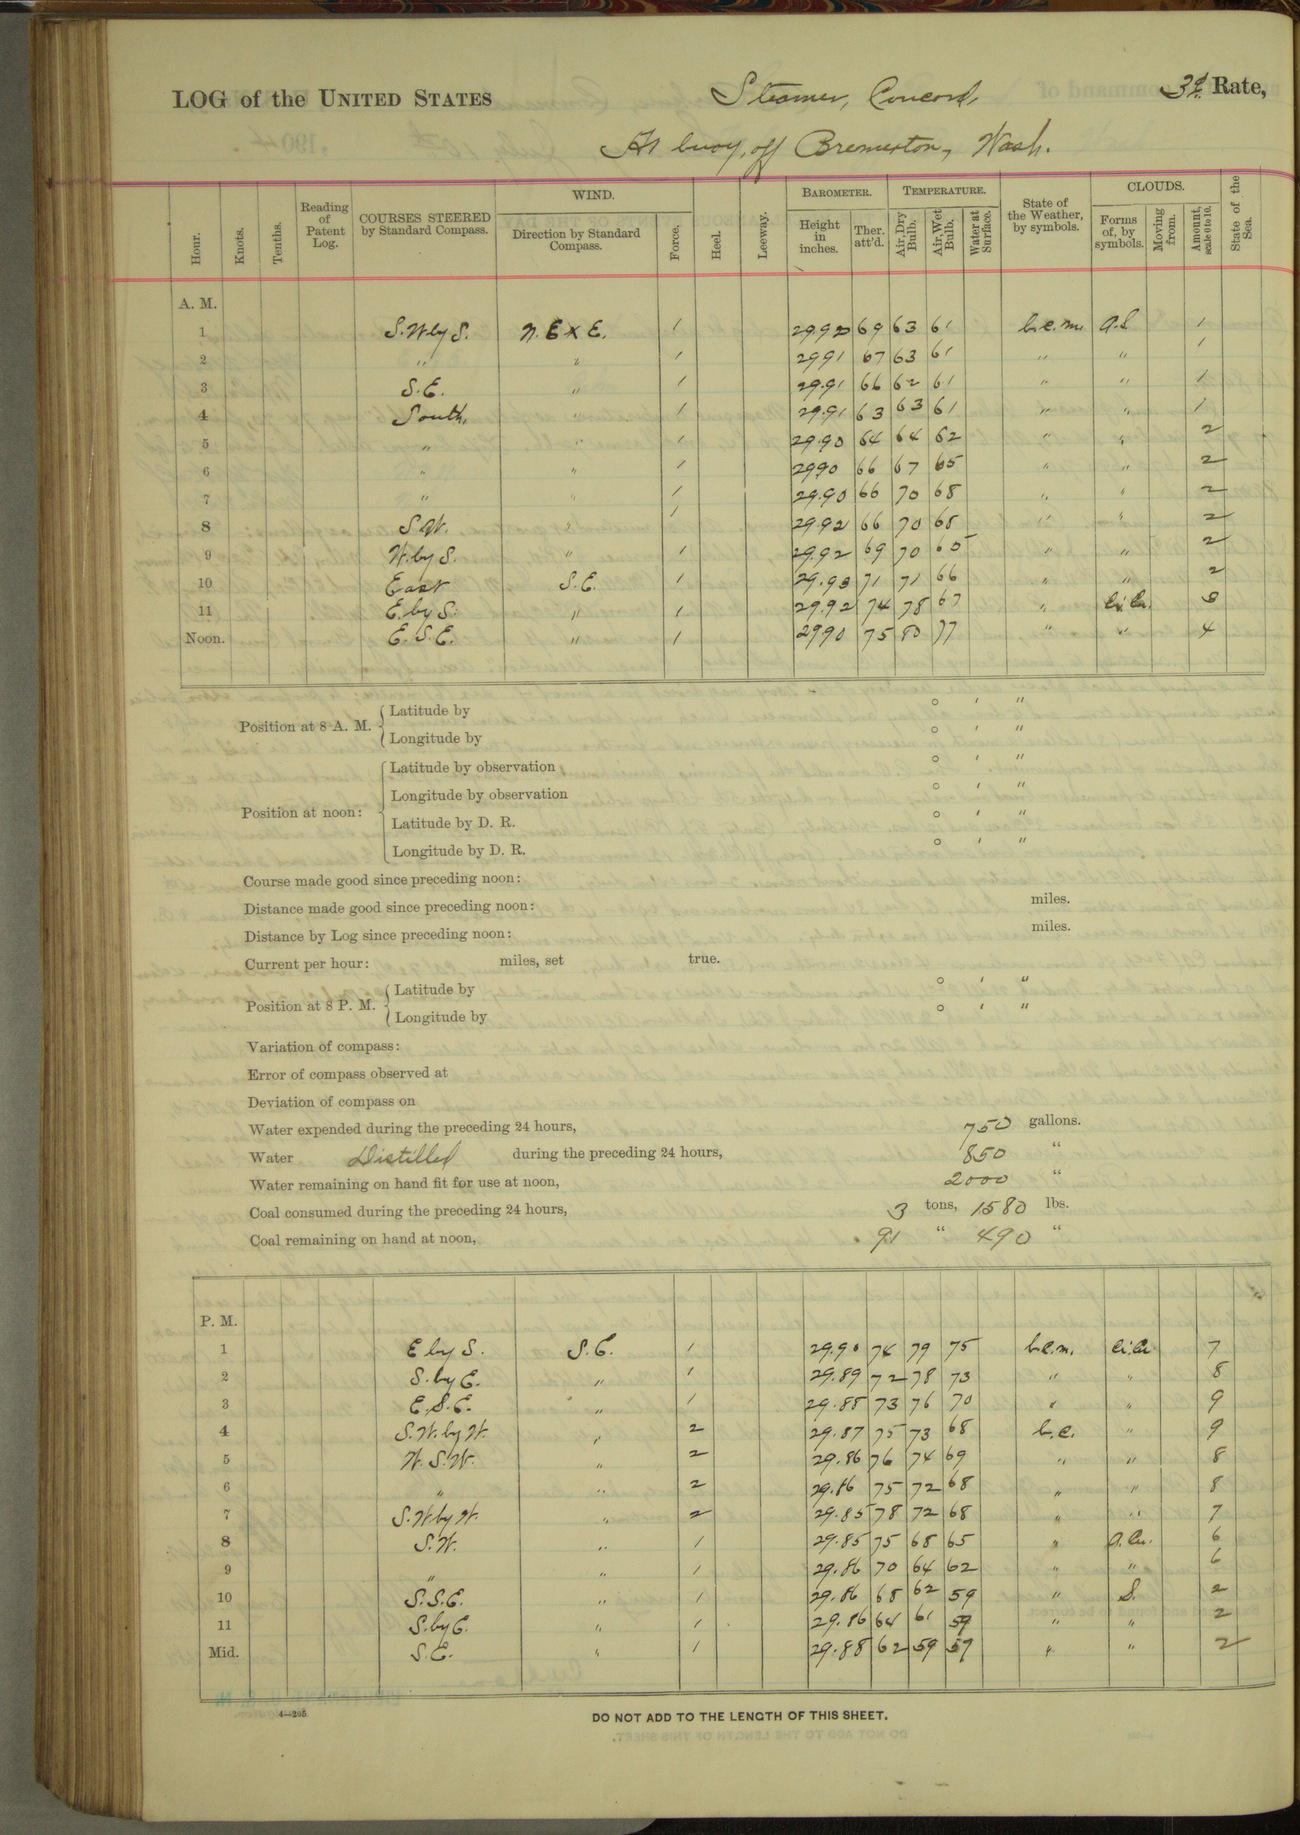 LOG of the UNITED STATES Steamer, Concord, 3d. Rate,
At buoy, off Bremerton, Wash.
Hour. Knots. Tenths. Reading of Patent Log. COURSES STEERED by Standard Compass. WIND. Direction by Standard Compass. Force. Heel. Leeway. BAROMETER. Height in inches. Ther. att'd. TEMPERATURE. Air, Dry Bulb. Air, Wet Bulb. Water at Surface. State of the Weather, by symbols. CLOUDS. Forms of, by symbols. Moving from. Amount, scale 0 to 10. State of the Sea.
A. M.
1 S.W. by S. N.E x E. 1 29.90 69 63 61 b.c.m. a.S 1
2 " " 1 2991 67 63 61 " " 1
3 S.E. " 1 29.91 66 62 61 " " 1
4 South, " 1 29.91 63 63 61 " " 1
5 " " 1 29.90 64 64 62 " " 2
6 " " 1 2990 66 67 65 " " 2
7 " " 1 29.90 66 70 68 " " 2
8 S.W. " 1 29.92 66 70 68 " " 2
9 W. by S. " 1 29.92 69 70 65 " " 2
10 East S.E. 1 29.93 71 71 66 " " 2
11 E. by S. " 1 29.92 74 78 67 " Ci.Cu.
Noon. E.S.E. " 1 2990 75 80 77 " " 4
Position at 8 A. M. Latitude by ° ' "
Longitude by ° ' "
Position at noon: Latitude by observation ° ' "
Longitude by observation ° ' "
Latitude by D. R. ° ' "
Longitude by D. R. ° ' "
Course made good since preceding noon:
Distance made good since preceding noon: miles.
Distance by Log since preceding noon: miles.
Current per hour: miles, set true.
Position at 8 P. M. Latitude by ° ' "
Longitude by ° ' "
Variation of compass:
Error of compass observed at
Deviation of compass on
Water expended during the preceding 24 hours, 750 gallons.
Water Distilled during the preceding 24 hours, 850 "
Water remaining on hand fit for use at noon, 2000 "
Coal consumed during the preceding 24 hours, 3 tons, 1580 lbs.
Coal remaining on hand at noon, 91 " 490 "
P. M.
1 E by S. S.E. 1 29.90 74 79 75 b.c.m. Ci.Cu 7
2 S. by E. " 1 29.89 72 78 73 " " 8
3 E.S.E. " 1 29.88 73 76 70 " " 9
4 S.W. by W. " 2 29.87 75 73 68 b.c. " 9
5 W.S.W. " 2 29.86 76 74 69 " " 8
6 " " 2 29.86 75 72 68 " " 8
7 S.W. by W. " 2 29.85 78 72 68 " " 7
8 S.W. " 1 29.85 75 68 65 " a.Cu. 6
9 " " 1 29.86 70 64 62 " " 6
10 S.S.E. " 1 29.86 68 62 59 " S. 2
11 S. by E. " 1 29.86 64 61 59 " " 2
Mid. S.E. " 1 29.88 62 59 57 " " 2
4—205
DO NOT ADD TO THE LENGTH OF THIS SHEET.